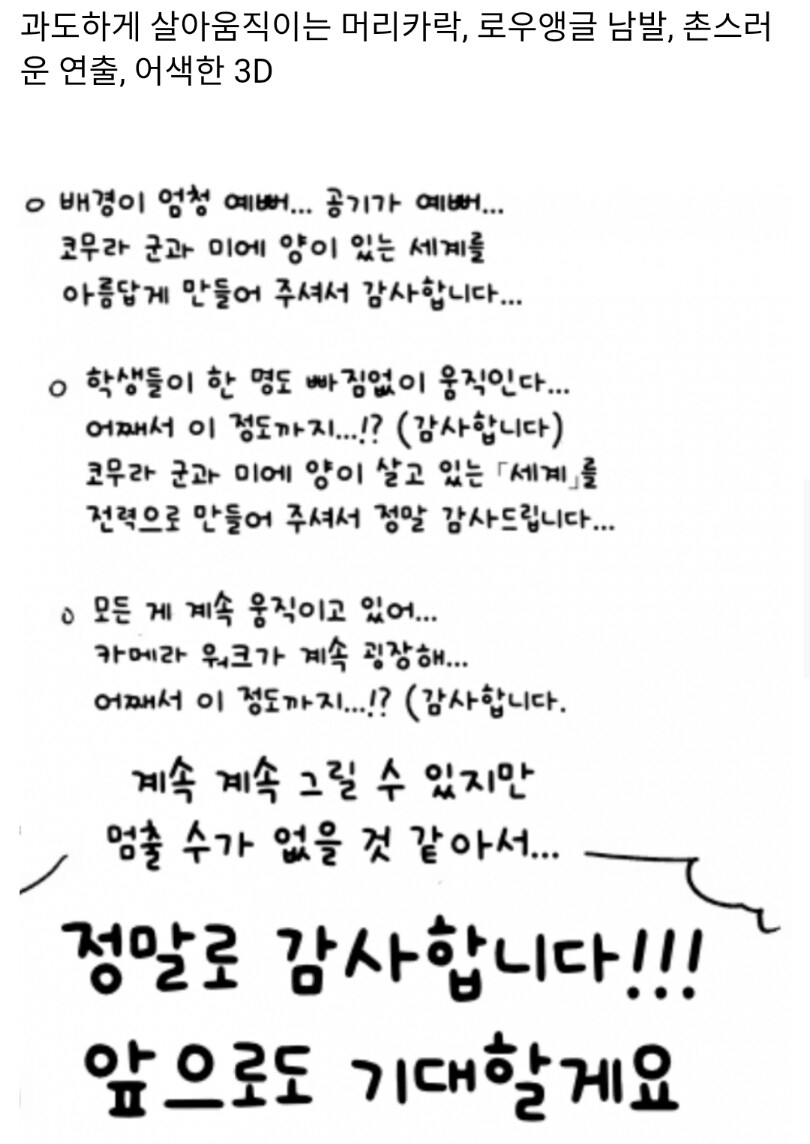 과도하게 살아움직이는 머리카락, 로우앵글 남발, 촌스러
운 연출, 어색한 3D
o 배경이 엄청 예뻐... 공기가 예뻐...
코무라 군과 미에 양이 있는 세계를
아름답게 만들어 주셔서 감사합니다...
o 학생들이 한 명도 빠짐없이 움직인다...
어째서 이 정도까지...!? (감사합니다)
코무라 군과 미에 양이 살고 있는 「세계」를
전력으로 만들어 주셔서 정말 감사드립니다...
o 모든 게 계속 웅직이고 있어...
카메라 워크가 계속 굉장해...
어째서 이 정도까지...!? (감사합니다.
계속 계속 그릴 수 있지만
멈출 수가 없을 것 같아서...
정말로 감사합니다!!!
앞으로도 기대할게요